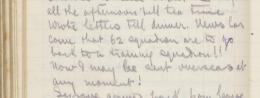 all the afternoon till tea time.
Wrote letters till dinner. News has
come that 62 squadron are to go
back to a training squadron!!
Now I may be sent overseas at
any moment!
arrived back from leave